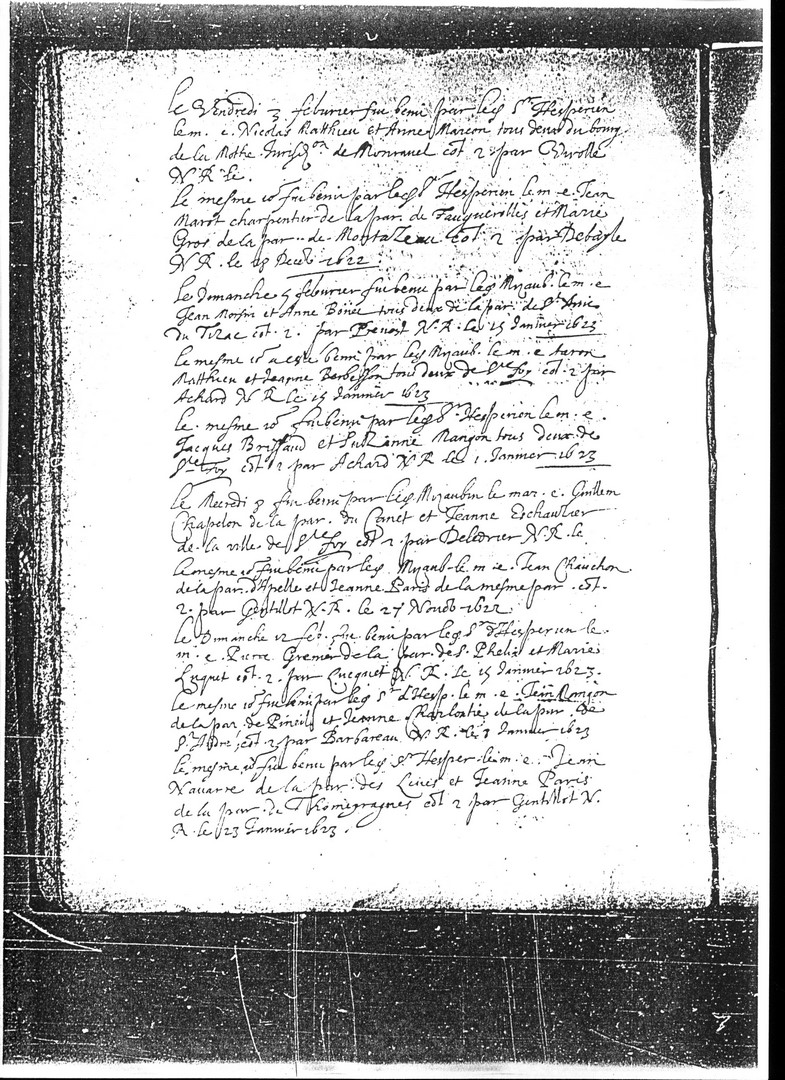 Le Vendredi 3 feburier fut beni par led Sr Hesperien
le m. e. Nicolas Matthieu et Anne Marcon tous deux du bourg
de la Mothe Jurisdon de Monravel cot 2 par Virolle
N. R. le.
Le mesme jor fut beni par led Sr Hesperien le m. e. Jean
Marot charpentier de la par. de Fauguerolles et Marie
Gros de la par. de Montazeau cot 2 par Debayle
N R. le 18 Decēb 1622
Le Dimanche 5 feburier fut beni par led Mizaub. le m. e
Jean et Anne tous deux de la par. de St Avie
du Tizac cot. 2. par Prevost N. R. le 15 Janvier 1623
Le mesme jor a esté beni par led Mizaub. le m. e Aaron
Matthieu et Jeanne Berbesson tous deux de Ste Foy cot. 2 par
Achard N R Le 15 Janvier 1623
Le mesme jor fut beni par led Sr Hesperien le m. e.
Jacques Briffaud et Suzanne Mangon tous deux de
Ste Foy cot 2 par Achard N R le 1. Janvier 1623
Le Mecredi 8 fut beni par led Mizaubin le mar. e. Guillem
Chapelon de la par. du Canet et Jeanne Eschaulier
de la ville de Ste Foy cot 2 par N R. le
Le mesme jor fut beni par led. Mizaub le m. e. Jean Chauchon
de la par. d'Apelle et Jeanne Paris de la mesme par. cot.
2. par Gentillot N. R. le 27 Novēb 1622
Le Dimanche 12 feb. fut beni par led Sr d'Hesperien le
m. e. Pierre Grenier de la par. de S. Phelix et Marie
Luquet cot. 2. par Lucquet N. R. Le 15 Janvier 1623.
Le mesme jor fut beni par led Sr d'Hesp. le m. e. Jean Mangon
de la par. de Pineuil et Jeanne de la par. de
S. André, cot. 2 par Barbareau N. R. le 8 Janvier 1623
Le mesme jor fut beni par led Sr Hesper. le m. e. Jean
Navarre de la par. des Leves et Jeanne Paris
de la par. de Thomeyragues cot 2 par Gentillot N.
R. le 23 Janvier 1623.